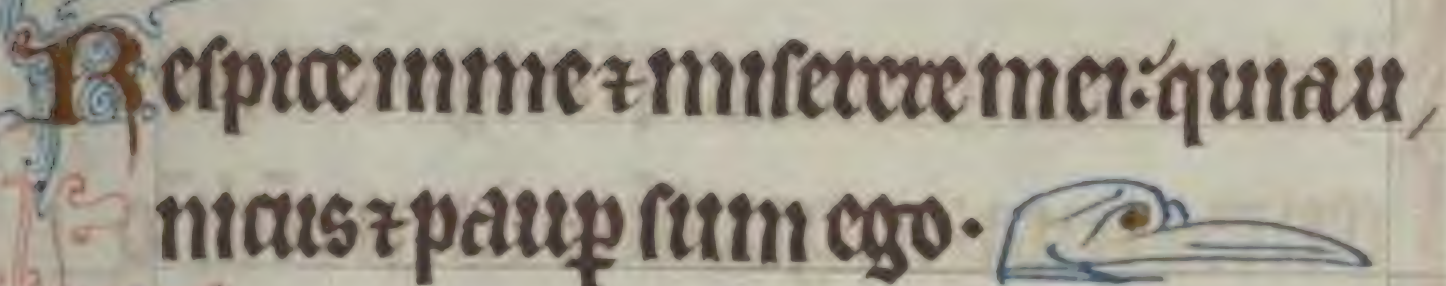 Respice in me ⁊ miserere mei: quia u/
nicus ⁊ paup̲ sum ego.